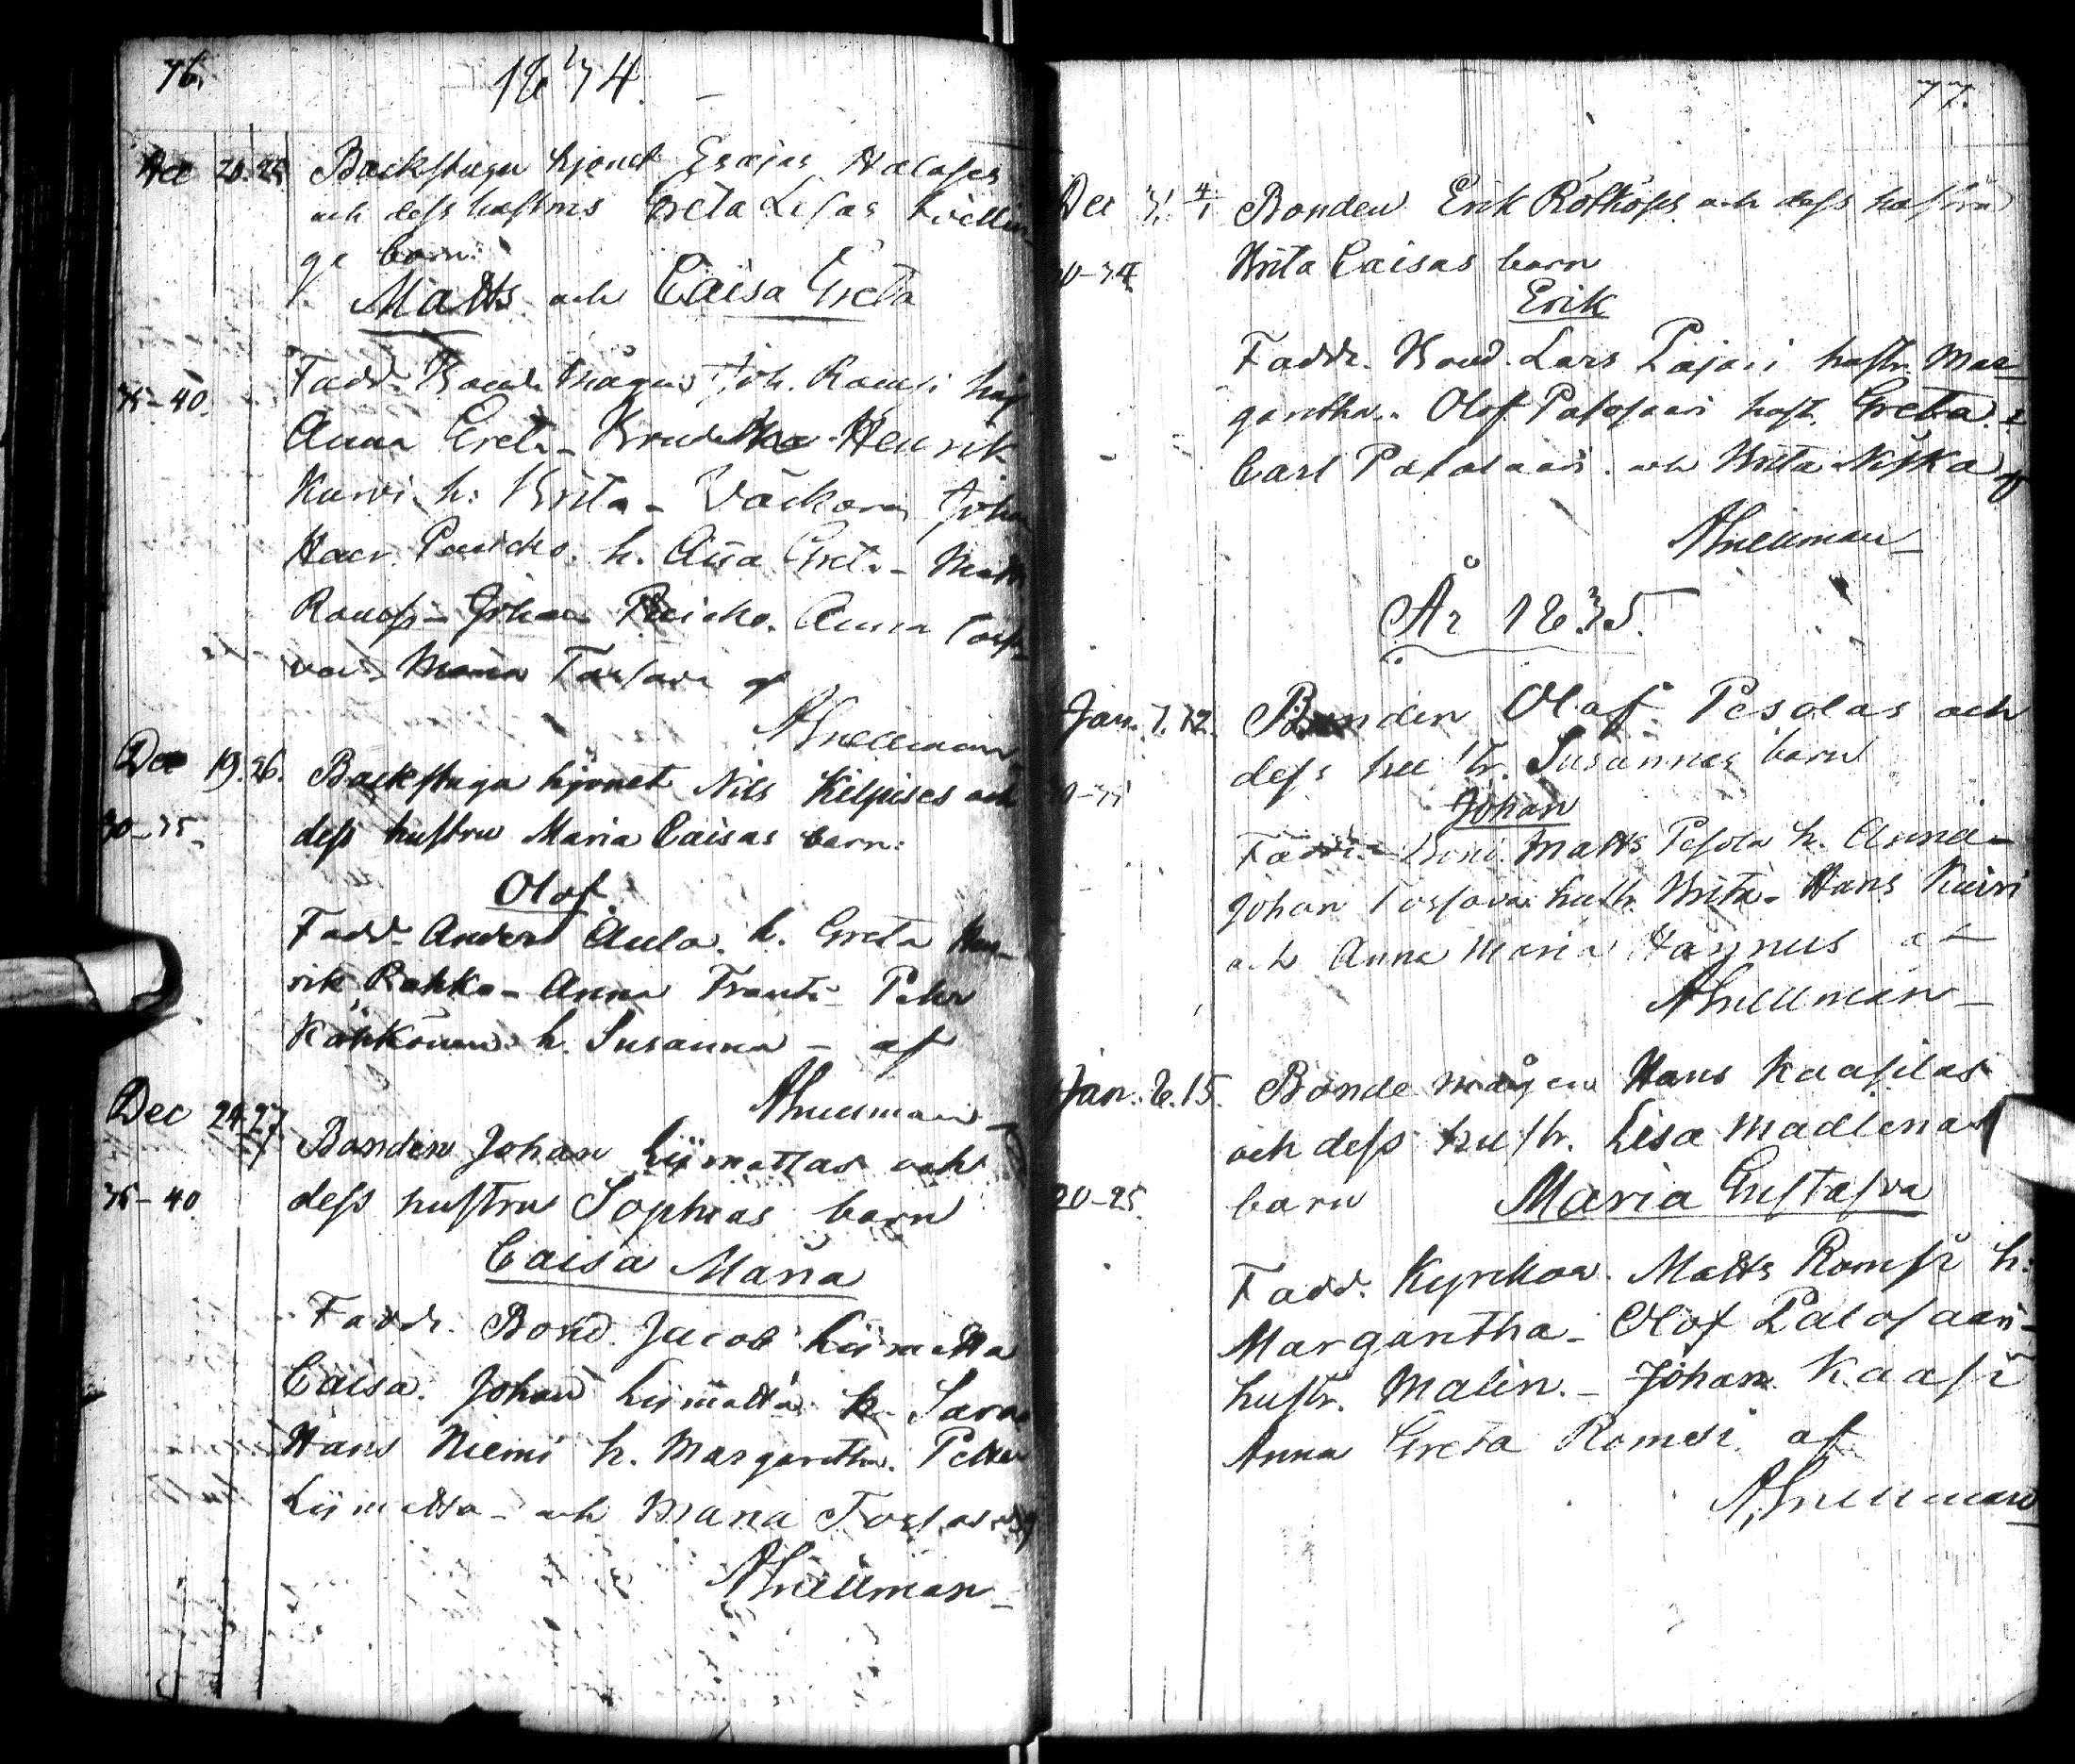 76.
1834.
Dec 20. 25 Backstugu hjonet Esajas Halases
och dess hustrus Greta Lisas tvillin-
ge barn:
Matts och Caisa Greta
35-40. Fadd. Bonde mågen Joh. Romsi
Anna Greta - Henrik
Kurvi h: Brita - Joha
h. Caisa Greta - Matts
Romssi - Johan Anna Torssa-
va Maria Torsava af
ASnellman
Dec 19. 26. Backstugu hjonet Nils Kilpises och
30-35. dess hustru Maria Caisas barn:
Olof.
Fadd. Anders Aula. h. Greta Hen-
rik Rahko - Anna Frantsi - Pehr
Kähkönen h. Susanna - af
ASnellman
Dec 24. 27 Bonden Johan Liimattas och
35-40. dess hustru Sophias barn
Caisa Maria
Faddr. Bond. Jacob Liimatta
Caisa. Johan Liimatta h. Sara
Hans Niemi h. Margaretha. Petter
Liimatta - och Maria
ASnellman
77.
Dec 31. 4/1 Bonden Erik och dess hustru
30-34 Brita Caisas barn
Erik
Faddr. Bond. Lars Pajari hustr. Mar-
garetha. Olof Palosaari hustr. Greta.
Carl Palosaari. och Brita Niska af
ASnellman
År 1835.
Jan. 7. 12. Bonden Olof Pesolas och
dess hustr. Susannas barn
Johan
Faddr. Bond. Matts Pesola h. Anna -
Johan Torssava hustr. Brita - Hans Kurvi
och Anna Maria af
ASnellman
Jan. 8. 15. Bonde mågen Hans Kaasilas
och dess hustr. Lisa Madlenas
20-25. barn Maria Gustafva
Fadd. Kyrkov. Matts Romsi h:
Margaretha - Olof Palosaari -
hustr. Malin. - Johan Kaasi
Anna Greta Romsi af
ASnellman